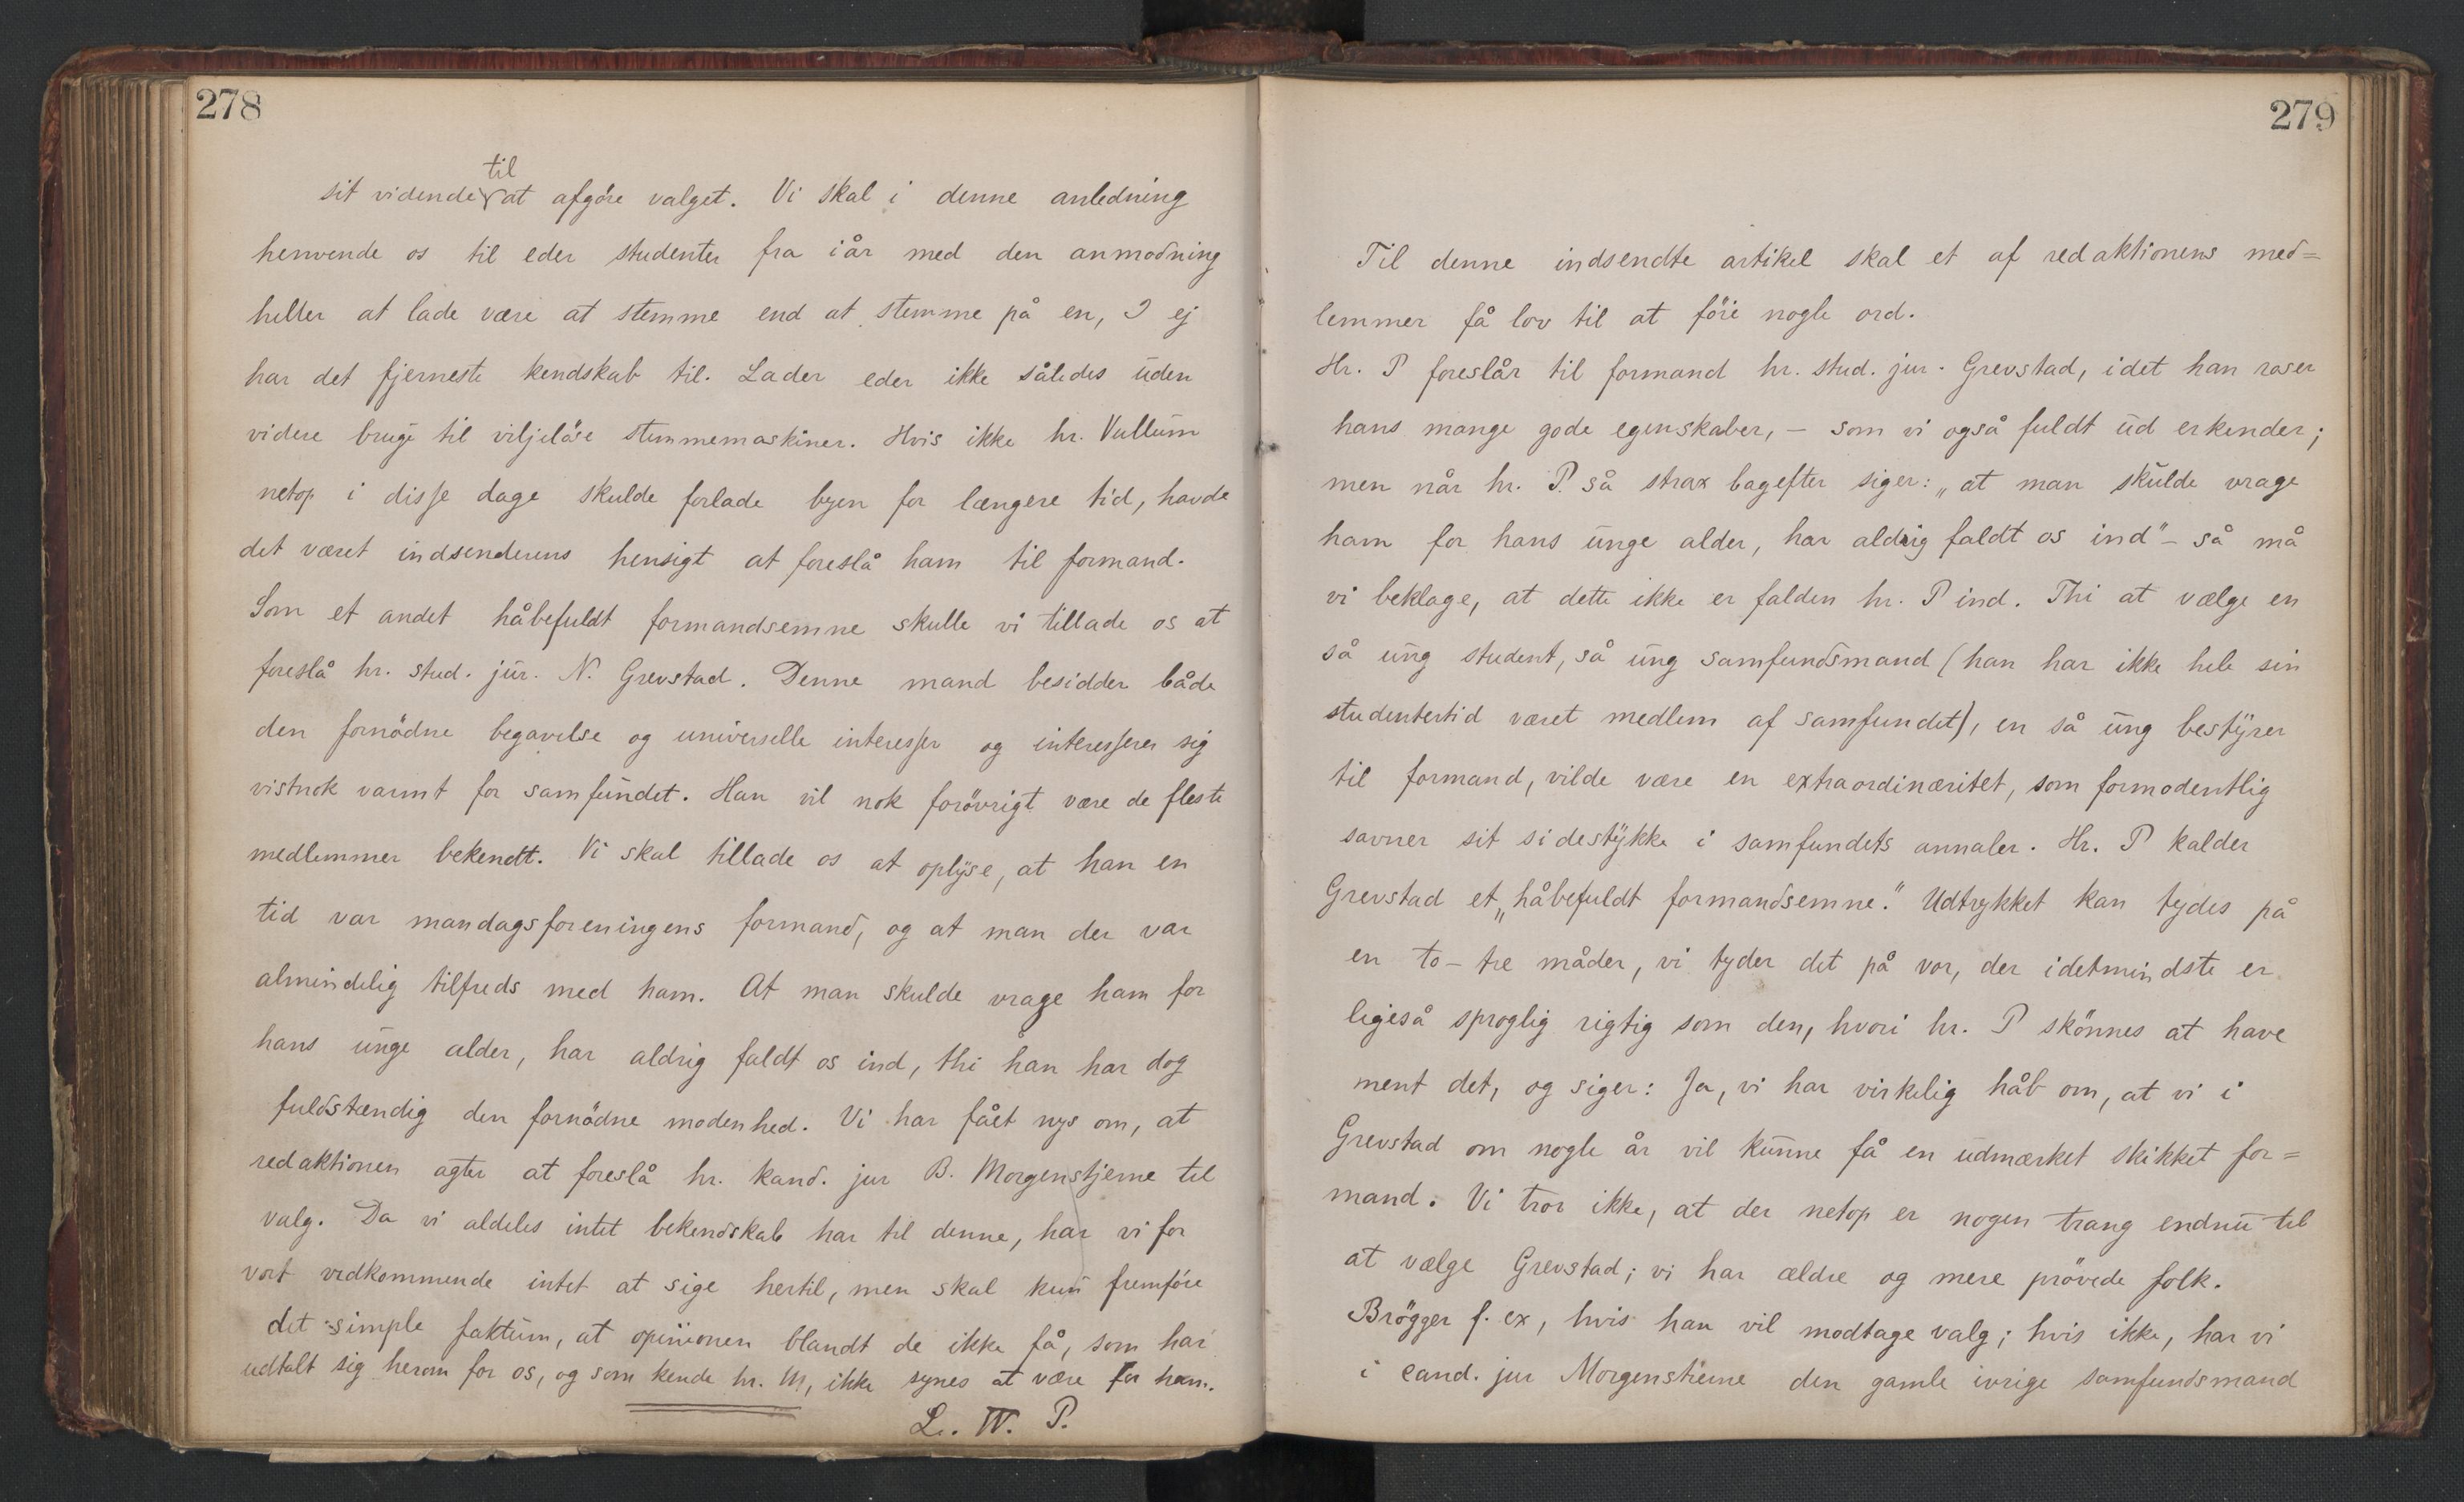 278
sit vidende til at afgöre valget. Vi skal i denne anledning
henvende os til eder studenter fra iår med den anmodning
heller at lade være at stemme end at stemme på en, I ej
har det fjerneste kendskab til. Lader eder ikke således uden
videre bruge til viljelöse stemmemaskiner. Hvis ikke hr. Vullum
netop i disse dage skulde forlade byen for længere tid, havde
det været indsenderens hensigt at foreslå ham til formand.
Som et andet håbefuldt formandsemne skulle vi tillade os at
foreslå hr. stud. jur. N. Grevstad. Denne mand besidder både
den fornödne begavelse og universelle interesser og interesserer sig
vistnok varmt for samfundet. Han vil nok forövrigt være de fleste
medlemmer bekendt. Vi skal tillade os at oplyse, at han en
tid var mandagsforeningens formand, og at man der var
almindelig tilfreds med ham. At man skulde vrage ham for
hans unge alder, har aldrig faldt os ind, thi han har dog
fuldstændig den fornödne modenhed. Vi har fået nys om, at
redaktionen agter at foreslå hr. kand. jur B. Morgenstjerne til
valg. Da vi aldeles intet bekendskab har til denne, har vi for
vort vedkommende intet at sige hertil, men skal kun fremföre
det simple faktum, at opinionen blandt de ikke få, som har
udtalt sig herom for os, og som kende hr. M, ikke synes at være for ham.
L. W. P.
279
Til denne indsendte artikel skal et af redaktionens med=
lemmer få lov til at föie nogle ord.
Hr. P foreslår til formand hr. stud. jur. Grevstad, idet han roser
hans mange gode egenskaber, – som vi også fuldt ud erkender;
men når hr. P. så strax bagefter siger: „at man skulde vrage
ham for hans unge alder, har aldrig faldt os ind" – så må
vi beklage, at dette ikke er falden hr. P ind. Thi at vælge en
så ung student, så ung samfundsmand (han har ikke hele sin
studentertid været medlem af samfundet), en så ung bestyrer
til formand, vilde være en extraordinæritet, som formodentlig
savner sit sidestykke i samfundets annaler. Hr. P kalder
Grevstad et „håbefuldt formandsemne." Udtrykket kan tydes på
en to – tre måder, vi tyder det på vor, der idetmindste er
ligeså sproglig rigtig som den, hvori hr. P skönnes at have
ment det, og siger: Ja, vi har virkelig håb om, at vi i
Grevstad om nogle år vil kunne få en udmærket skikket for=
mand. Vi tror ikke, at der netop er nogen trang endnu til
at vælge Grevstad; vi har ældre og mere prövede folk.
Brögger f. ex, hvis han vil modtage valg; hvis ikke, har vi
i cand. jur Morgenstierne den gamle ivrige samfundsmand